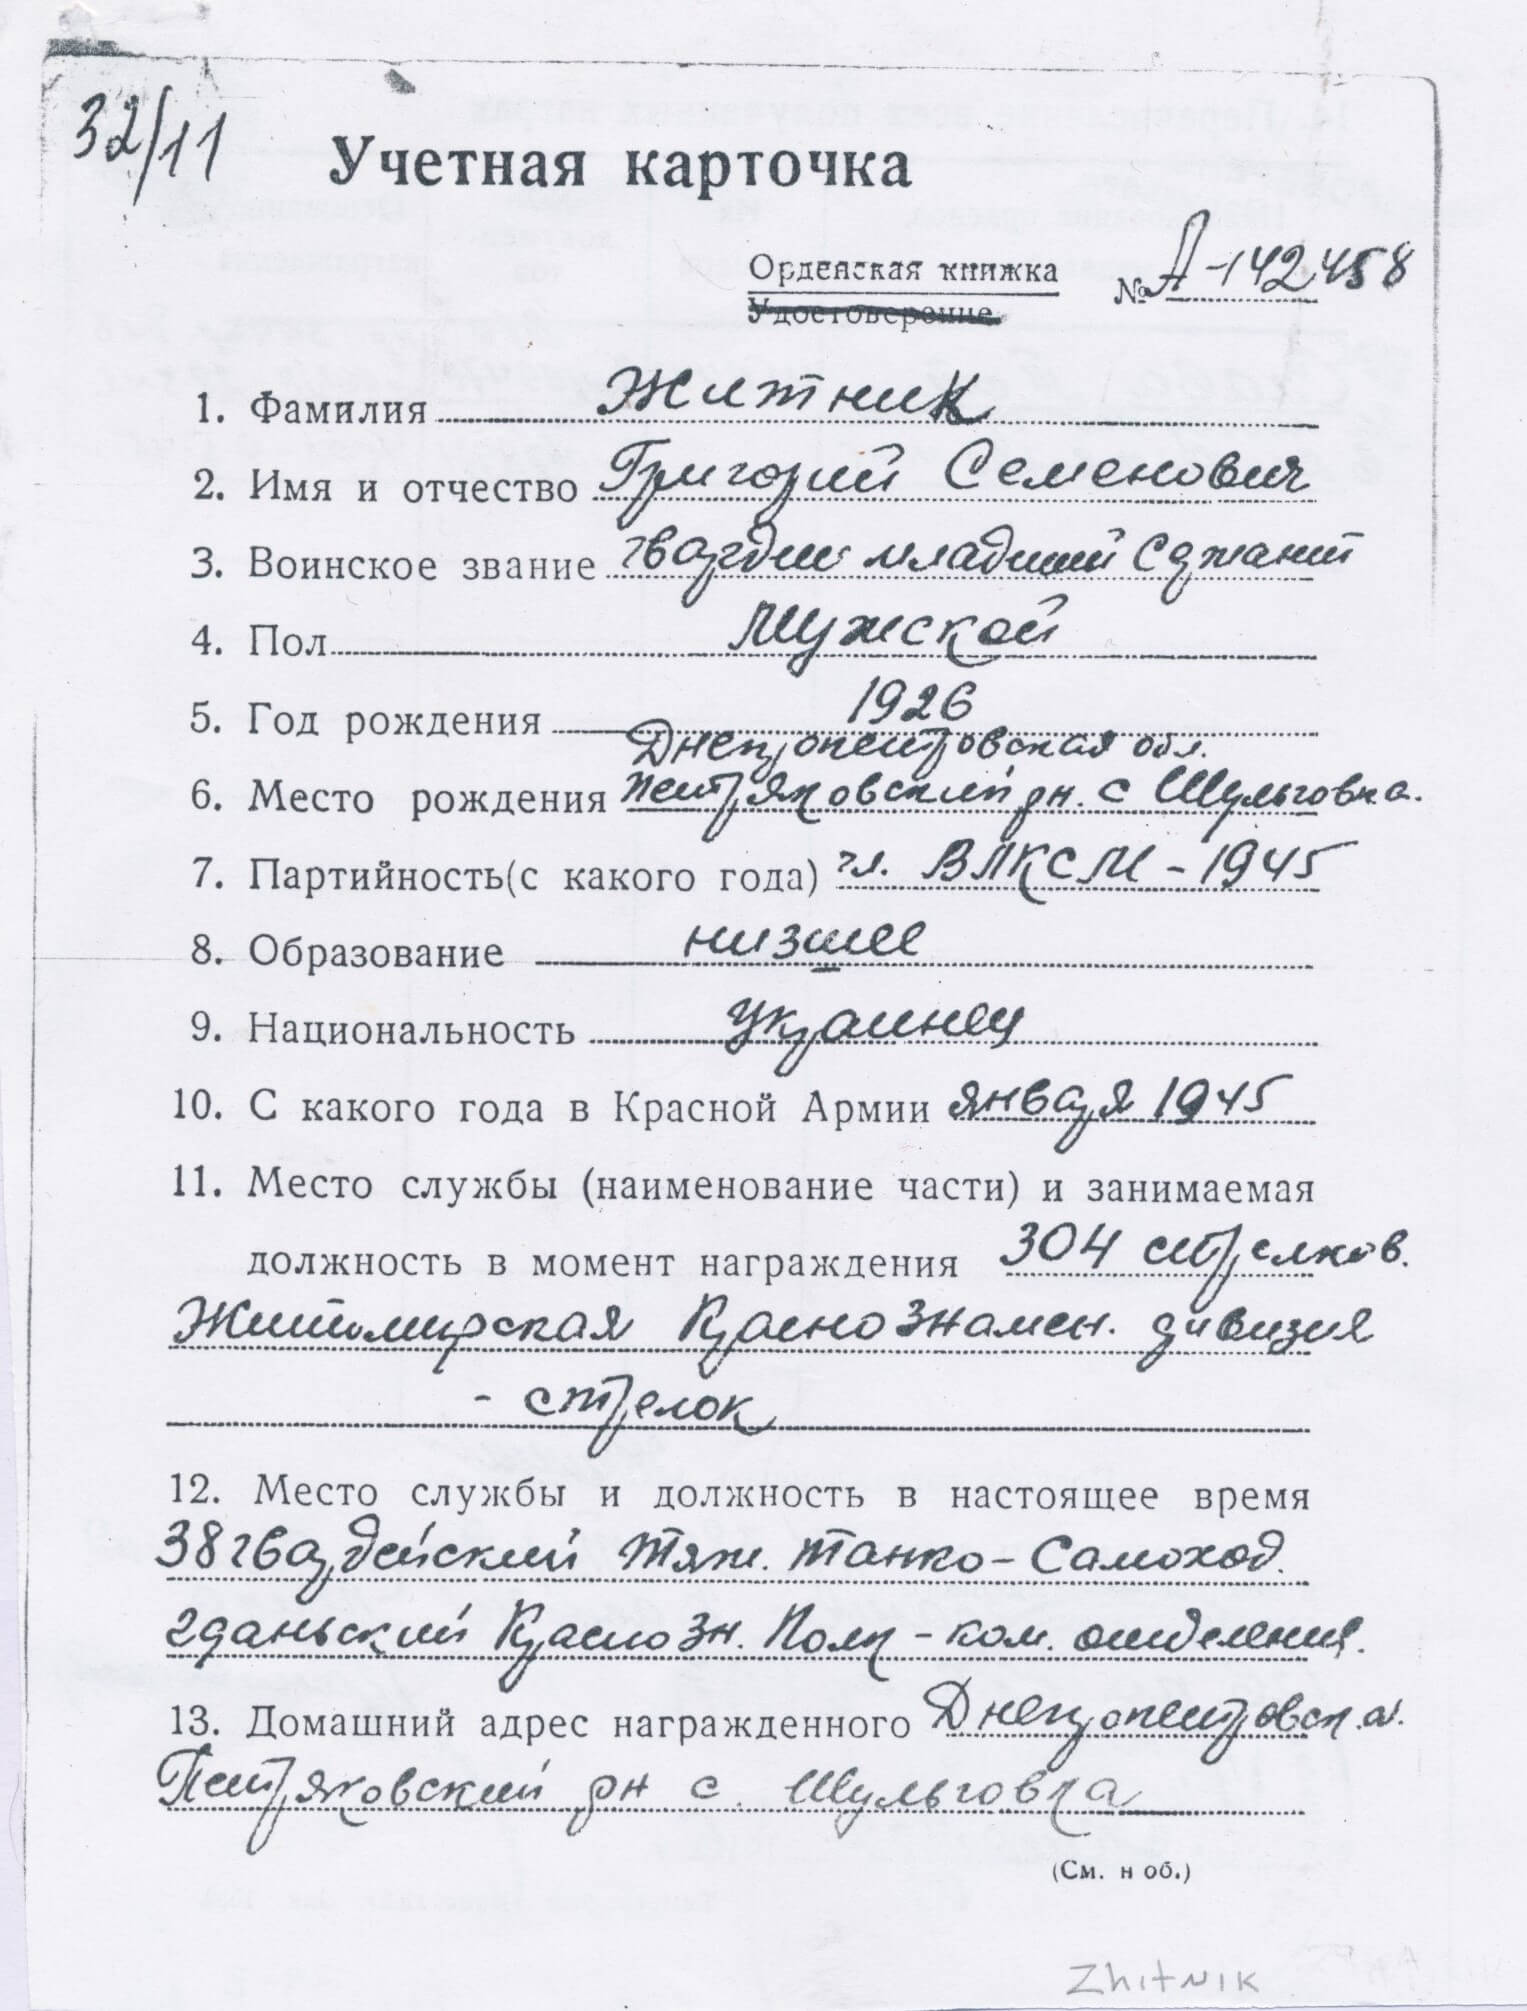 32/11
Учетная карточка
Орденская книжка № А-142458
Удостоверение
1. Фамилия Житник
2. Имя и отчество Григорий Семенович
3. Воинское звание гвардии младший Сержант
4. Пол Мужской
5. Год рождения 1926
Днепропетровская обл.
6. Место рождения Петряковский рн. с Шульговка.
7. Партийность (с какого года) чл. ВЛКСМ - 1945
8. Образование низшее
9. Национальность украинец
10. С какого года в Красной Армии января 1945
11. Место службы (наименование части) и занимаемая
должность в момент награждения 304 стрелков.
Житомирская Краснознамен. дивизия
- стрелок
12. Место службы и должность в настоящее время
38 гвардейский тяж. танко-Самоход.
гданьский Краснозн. Полк - ком. отделения.
13. Домашний адрес награжденного Днепропетровск.
Петряковский рн с. Шульговка
(См. н об.)
Zhitnik